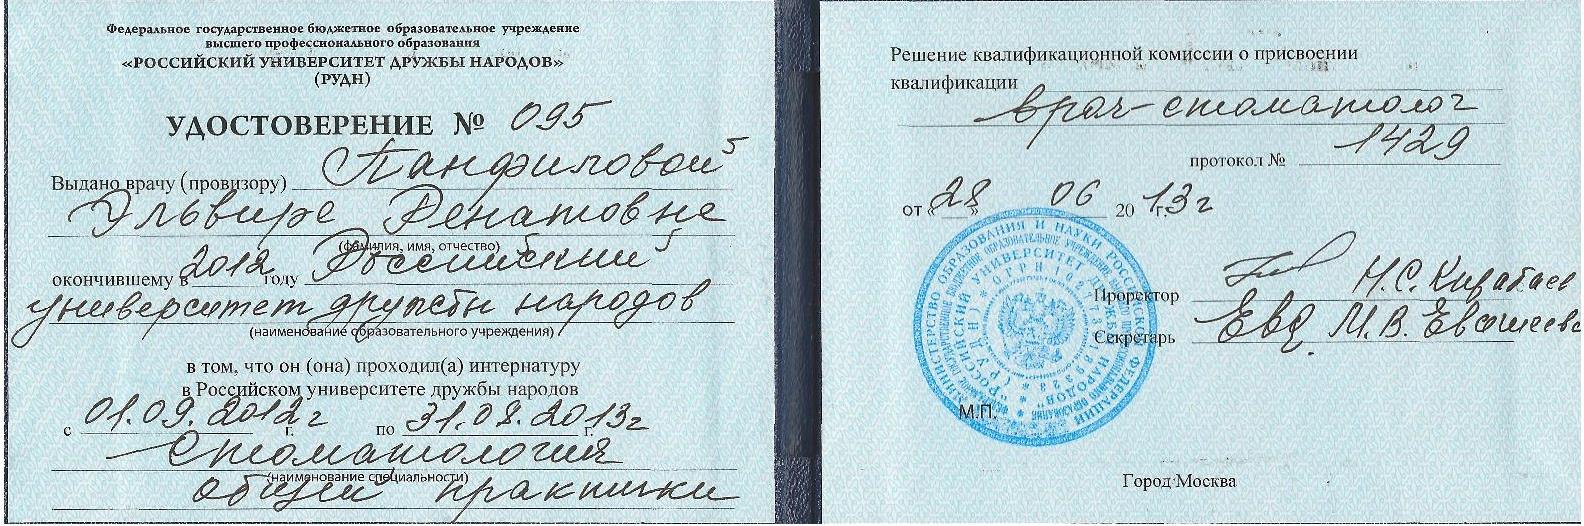 Федеральное государственное бюджетное образовательное учреждение
высшего профессионального образования
«РОССИЙСКИЙ УНИВЕРСИТЕТ ДРУЖБЫ НАРОДОВ»
(РУДН)
УДОСТОВЕРЕНИЕ № 095
Выдано врачу (провизору) Панфиловой
Эльвире Ренатовне
(фамилия, имя, отчество)
окончившему в 2012 году Российский
университет дружбы народов
(наименование образовательного учреждения)
в том, что он (она) проходил(а) интернатуру
в Российском университете дружбы народов
с 01.09.2012г г. по 31.08.2013г г.
Стоматология
(наименование специальности)
общей практики
Решение квалификационной комиссии о присвоении
квалификации
врач-стоматолог
протокол № 1429
от «28» 06 2013г г.
Проректор Н.С. Кирабаев
Секретарь М.В.
М.П.
Город Москва